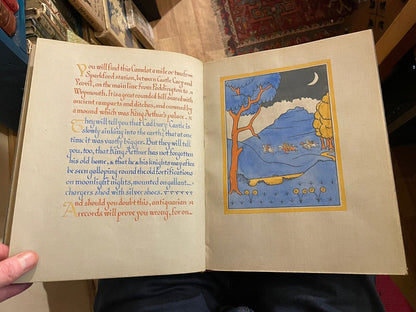 You will find this Camelot a mile or two from
Sparkford station, between Castle Cary and
Yeovil, on the main line from Paddington to
Weymouth. It is a great rounded hill, scarred with
ancient ramparts and ditches, and crowned by
a mound which was King Arthur's palace.
They will tell you that Cadbury Castle is
slowly sinking into the earth; that at one
time it was vastly bigger. But they will tell
you, too, that King Arthur has not forgotten
his old home, & that he & his knights may often
be seen galloping round the old fortifications
on moonlight nights, mounted on gallant
chargers shod with silver shoes.
And should you doubt this, antiquarian
records will prove you wrong, for on